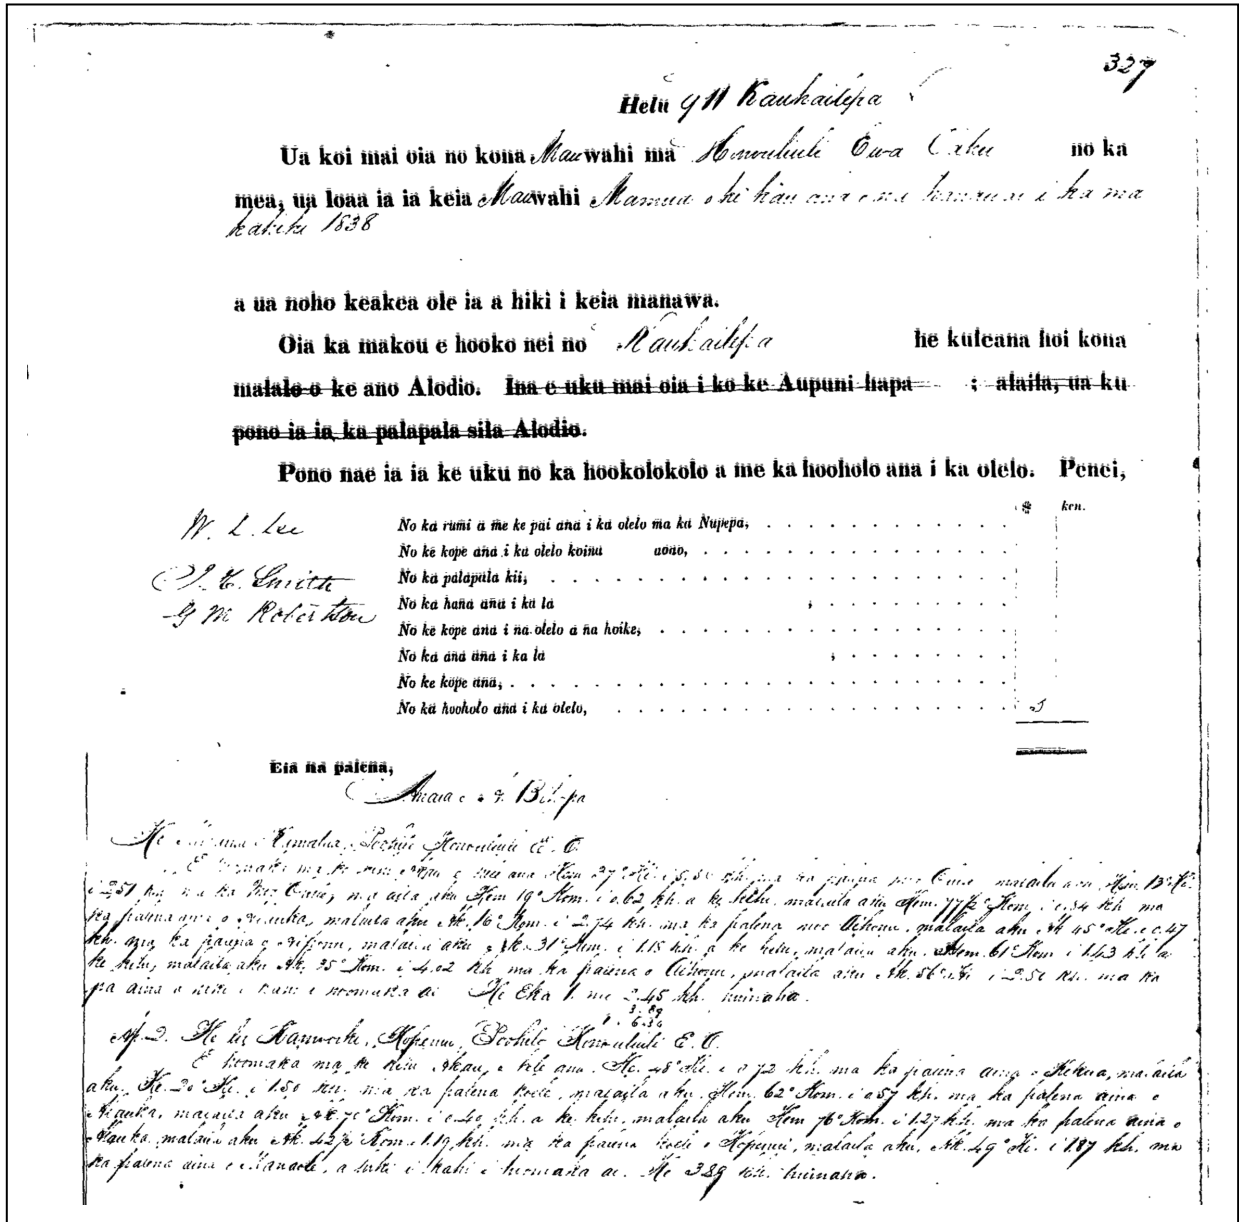 327
Helu 911 Kauhailepa
Ua koi mai oia no kona Mauwahi ma Honouliuli Ewa Oahu no ka
mea, ua loaa ia ia keia Mauwahi Mamua o ka i ka ma
kahiki 1838
a ua noho keakea ole ia a hiki i keia manawa.
Oia ka makou e hooko nei no Kauhailepa he kuleana hoi kona
malalo o ke ano Alodio. Ina e uku mai oia i ko ke Aupuni hapa ; alaila, ua ku
pono ia ia, ka palapala sila Alodio.
Pono nae ia ia ke uku no ka hookolokolo a me ka hooholo ana i ka olelo. Penei,
$ ken.
W. L. Lee
No ka rumi a me ke pai ana i ka olelo ma ka Nupepa,
No ke kope ana i ka olelo koina aono,
J. H. Smith
No ka palapala kii,
G M Robertson
No ka hana ana i ka la ,
No ke kope ana i na olelo a na hoike,
No ka ana ana i ka la ,
No ke kope ana,
No ka hooholo ana i ka olelo, 5
Eia na palena,
Apana Bihopa
He Poohilo Honouliuli E. O.
E hoomaka ma ke kihi Akau e hele ana Hem 27° Hi. kh. ma ka palena malaila aku Hem 13° Ko.
i 2.51 kh. ma ka malaila aku Hem 19° Kom. i 0.62 kh. a ke kihi malaila aku Hem. 77½° Kom. i 0.34 kh. ma
ka palena aina o Nauka, malaila aku Ak. 16° Kom. i 2.74 kh. ma ka palena malaila aku Ak 45° Hi. i 0.47
kh. ma ka palena o malaila aku Ak 31° Kom. i 1.15 kh. a ke kihi, malaila aku Hem. 61° Kom i 1.43 kh a
ke kihi, malaila aku Ak. 25° Kom. i 4.02 kh ma ka palena o malaila aku Ak 56° Hi i 2.50 kh. ma ka
pa aina a hiki i kahi i hoomaka ai He Eka 1. me 2.45 kh. kuinaha.
3.89
1. 6.34
Ap. 2. He loi Kamooiki, Kopenui, Poohilo Honouliuli E. O.
E hoomaka ma ke kihi Akau, e hele ana. He. 48° Hi. i 0.72 kh. ma ka palena aina o Kekua, malaila
aku. He. 20° Hi. i 1.50 kh. ma ka palena koele, malaila aku. Hem. 62° Kom. i 0.57 kh. ma ka palena aina o
Nauka, malaila aku Ak 70° Kom. i 0.40 kh. a ke kihi, malaila aku Hem 76° Kom. i 1.27 kh. ma ka palena aina o
Nauka, malaila aku Ak. 42½ Kom. i 1.19 kh. ma ka palena koele o Kopenui, malaila aku, Ak. 49° Hi. i 1.87 kh. ma
ka palena aina o a hiki i kahi i hoomaka ai. He 3.89 kh. kuinaha.